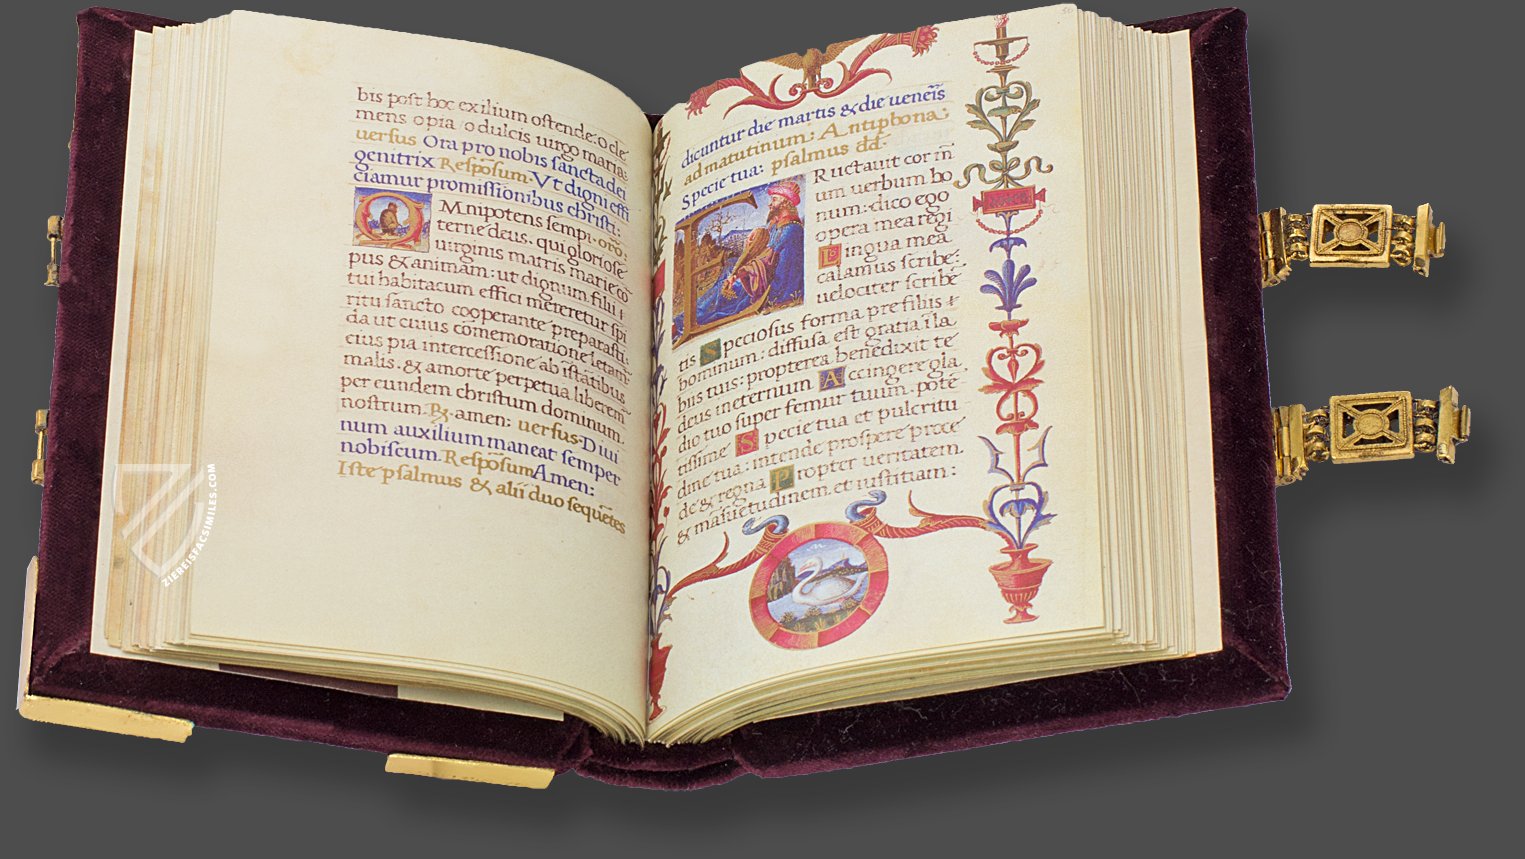 bis post hoc exilium ostende: o cle
mens o pia / o dulcis uirgo maria:
uersus Ora pro nobis sancta dei
genitrix Respōsum. Vt digni effi
ciamur promissionibus christi:
O Mnipotens sempi. orō.
terne deus. qui gloriose
uirginis matris marie co
pus & animam: ut dignum filii
tui habitacum effici mereretur spi
ritu sancto cooperante preparasti:
da ut cuius cōmemoratione letam
cius pia intercessione ab īstātibus
malis. & a morte perpetua liberem
per eundem christum dominum.
nostrum. R. amen: uersus. Diui
num auxilium maneat semper
nobiscum. Respōsum Amen:
Iste psalmus & alii duo sequētes
dicuntur die martis & die ueneīs
ad matutinum: Antiphona.
Specie tua: psalmus dd.
E Ructauit cor m̄
um uerbum bo
num: dico ego
opera mea regi
Lingua mea
calamus scribe:
uelociter scribē
tis Speciosus forma pre filiis
hominum: diffusa est gratia ī la
biis tuis: propterea benedixit te
deus in eternum Accingere gla.
dio tuo super femur tuum. potē
tissime Specie tua et pulcritu
dine tua: intende prospere proce
de & regna Propter ueritatem.
& māsuetudinem. et iustitiam:
ZIEREISFACSIMILES.COM